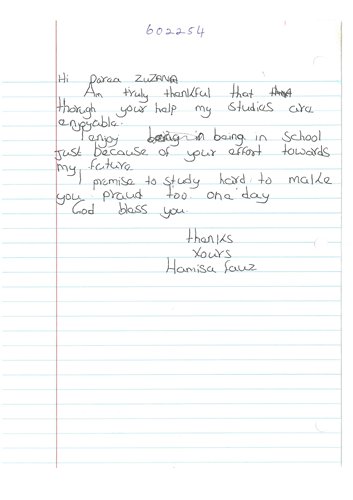 602254
Hi Daraa ZUZANA
Am truly thankful that
thorugh your help my studies are
enjoyable.
I enjoy being in being in school
just because of your effort towards
my future
I promise to study hard to make
you proud too one day
God bless you.
thanks
Yours
Hamisa Fauz